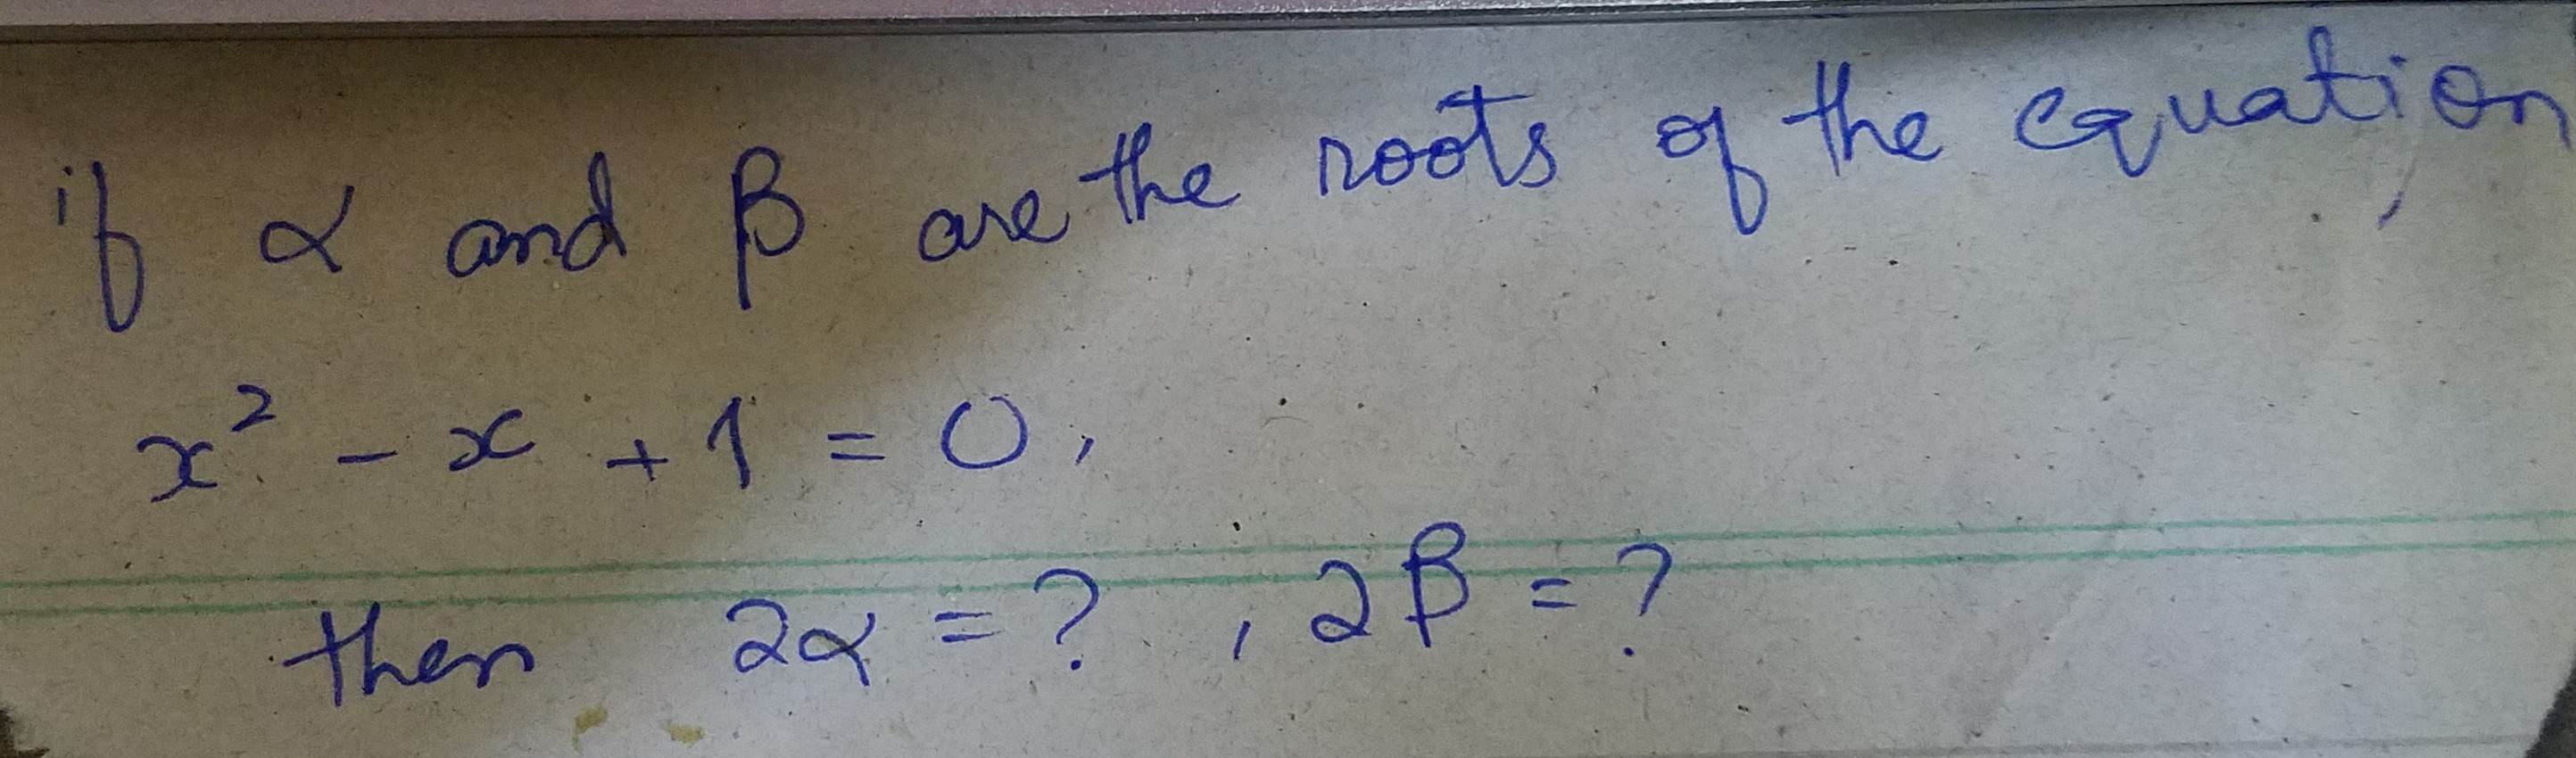 if α and β are the roots of the equation,
x² - x + 1 = 0,
then 2α = ? , 2β = ?